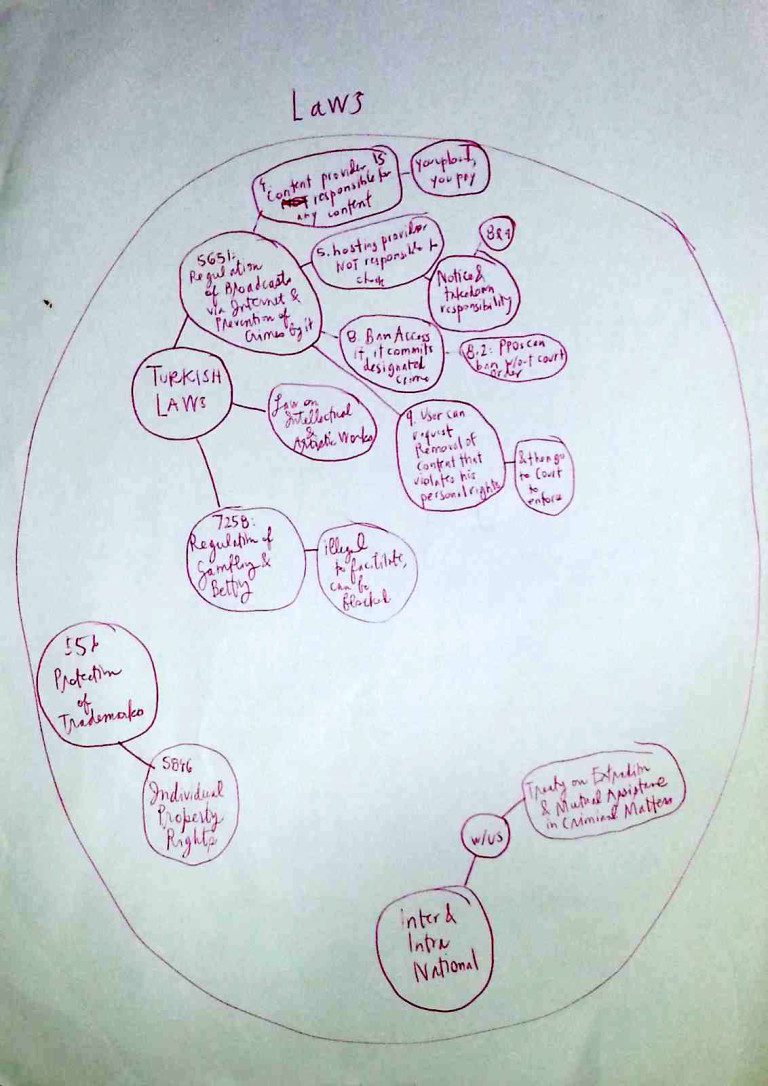 Laws
4. Content provider is
responsible for
any content
you upload,
you pay
5651:
Regulation
of Broadcasts
via Internet &
Prevention of
Crimes by it
5. hosting provider
NOT responsible to
check
8&9
Notice &
takedown
responsibility
8. Ban Access
if, it commits
designated
crime
8.2: PPOs can
ban w/o-t court
order
9. User can
request
Removal of
content that
violates his
personal rights
& then go
to Court
to
enforce
TURKISH
LAWS
Law on
Intellectual
&
Artistic Works
7258:
Regulation of
Gambling &
Betting
illegal
to facilitate,
can be
blocked
556
Protection
of
Trademarks
5846
Individual
Property
Rights
Treaty on Extradition
& Mutual Assistance
in Criminal Matters
w/US
Inter &
Intra
National